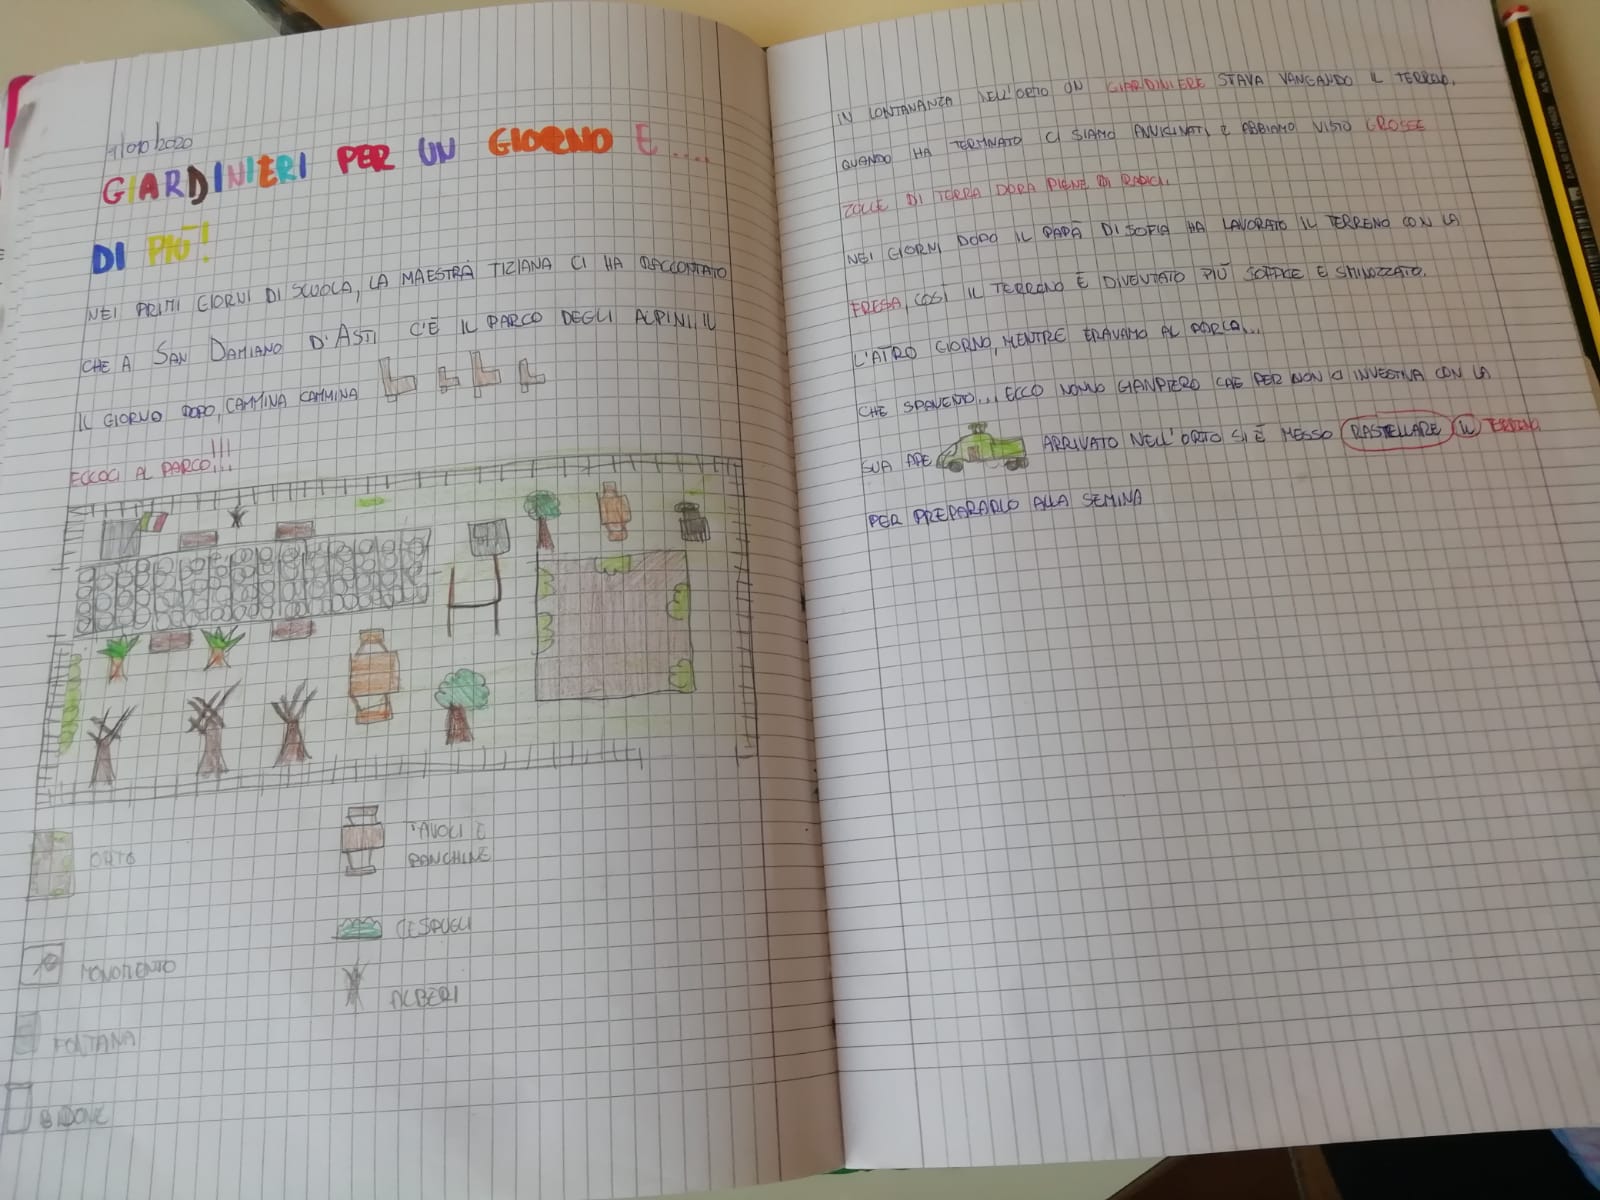 GIARDINIERI PER UN GIORNO E ....
DI PIÙ!
NEI PRIMI GIORNI DI SCUOLA, LA MAESTRA TIZIANA CI HA RACCONTATO
CHE A SAN DAMIANO D'ASTI C'È IL PARCO DEGLI ALPINI. IL
IL GIORNO DOPO, CAMMINA CAMMINA
ECCOCI AL PARCO!!!
ORTO
MONOMENTO
FONTANA
BIDONE
TAVOLI E
PANCHINE
CESPUGLI
ALBERI
IN LONTANANZA DELL'ORTO UN GIARDINIERE STAVA VANGANDO IL TERRENO.
QUANDO HA TERMINATO CI SIAMO AVVICINATI E ABBIAMO VISTO GROSSE
ZOLLE DI TERRA DORA PIENE DI RADICI.
NEI GIORNI DOPO IL PAPÀ DI SOFIA HA LAVORATO IL TERRENO CON LA
FRESA, COSÌ IL TERRENO È DIVENTATO PIÙ SOFFICE E SMINUZZATO.
L'ATRO GIORNO, MENTRE ERAVAMO AL PARCO...
CHE SPAVENTO... ECCO NONNO GIANPIERO CHE PER NON CI INVESTIVA CON LA
SUA APE ARRIVATO NELL'ORTO SI È MESSO RASTELLARE IL TERRENO
PER PREPARARLO ALLA SEMINA